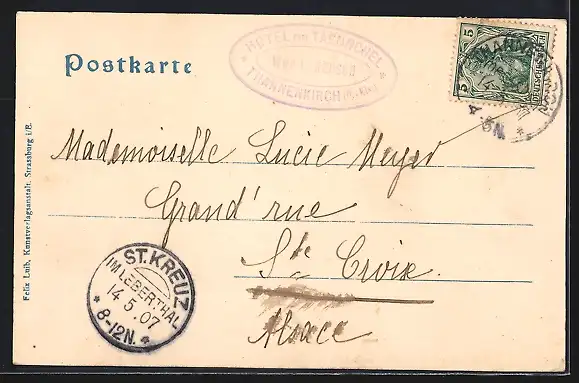 Postkarte
HOTEL DU TAENNCHEL
THANNENKIRCH
5 DEUTSCHES REICH 5
Mademoiselle Lucie Meyer
Grand' rue
Ste Croix
Alsace
ST. KREUZ
IM LEBERTHAL
14.5.07
* 8-12N. *
Felix Luib, Kunstverlagsanstalt, Strassburg i/E.